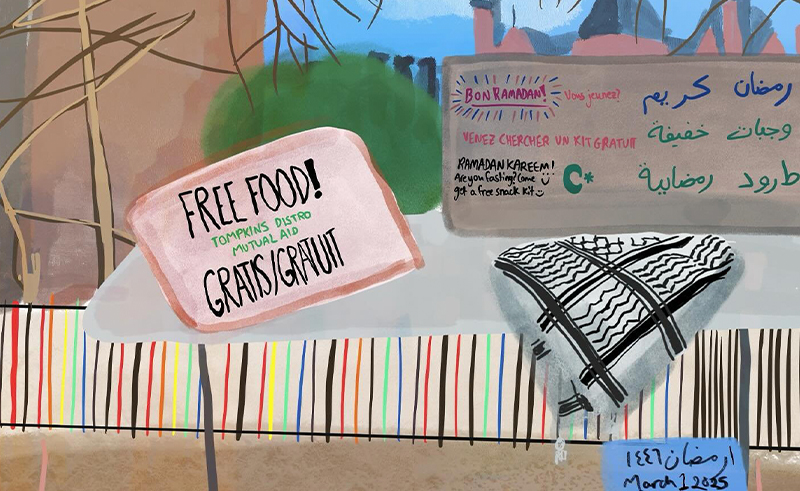 FREE FOOD!
TOMPKINS DISTRO
MUTUAL AID
GRATIS/GRATUIT
BON RAMADAN!
Vous jeunez?
VENEZ CHERCHER UN KIT GRATUIT
RAMADAN KAREEM!
Are you fasting? Come
get a free snack kit
رمضان كريم
وجبات خفيفة
طرود رمضانية
١ رمضان ١٤٤٦
March 1 2025